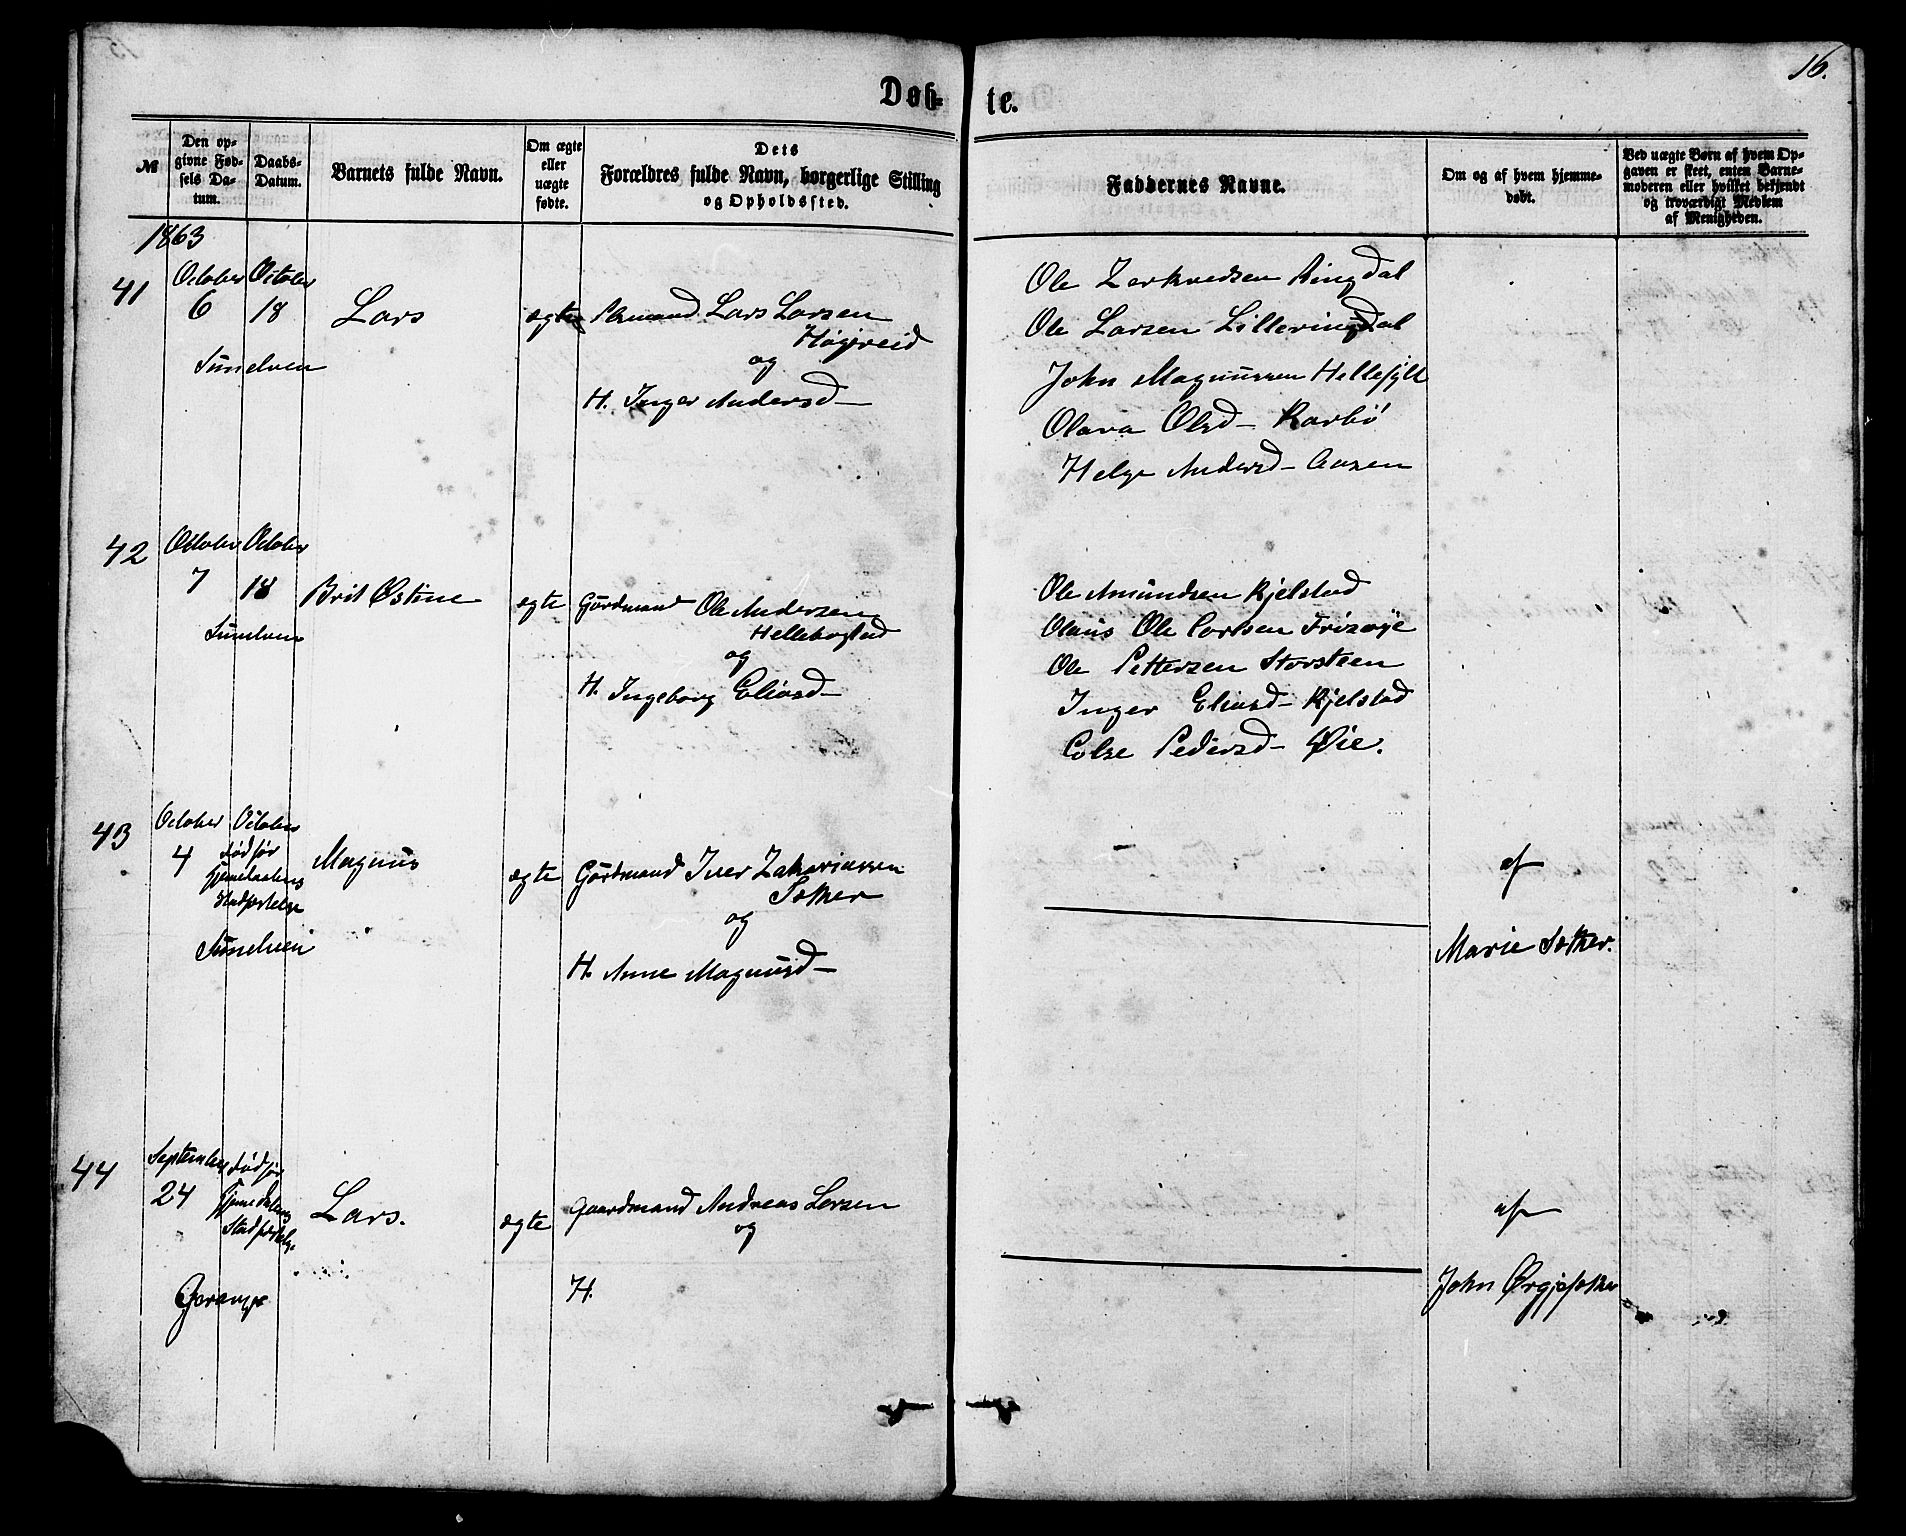 16.
Døb-
te.
№
Den op-
givne Fød-
sels Da-
tum.
Daabs-
Datum.
Barnets fulde Navn.
Om ægte
eller
uægte
fødte.
Dets
Forældres fulde Navn, borgerlige Stilling
og Opholdssted.
Faddernes Navne.
Om og af hvem hjemme-
døbt.
Ved uægte Børn af hvem Op-
gaven er skeet, enten Barne-
moderen eller hvilket bekjendt
og troværdigt Medlem
af Menigheden.
1863
41
October
6
October
18
Sunelven
Lars
ægte
Lars Larsen
Højreid
og
H. Inger Andersd—
Ole Zerkvedsen Ringdal
Ole Larsen Lilleringdal
John Magnussen Hellesylt
Olava Olsd— Karbø
Helge Andersd— Aasen
42
October
7
October
18
Sunelven
Brit Østine
ægte
Gårdmand Ole Andersen
Hellebogstad
og
H. Ingeborg Eliasd—
Ole Amundsen Kjelstad
Olaus Ole Carlsen Frisøye
Ole Pettersen Storsteen
Inger Eliasd— Kjelstad
Colse Pedersd— Øie.
43
October
4
October
død før
hjemedaabens
stadfæstelse
Sunelven
Magnus
ægte
Gårdmand Iver Zakariassen
Sæther
og
H. Anne Magnusd—
af
Marie Sæther.
44
September
24
død før
hjemedaabens
Stadfæstelse
Lars.
ægte
Gaardmand Andreas Larsen
og
H.
af
John Ørgjesæther